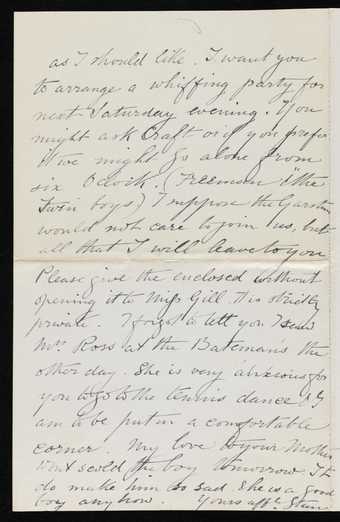 as I should like. I want you
to arrange a whiffing party for
next Saturday evening. You
might ask Craft or if you prefer
it we might go alone from
six Oclock. (Freeman "the
Twin boys) I suppose the
would not care to join us, but
all that I will leave to you
Please give the enclosed without
opening it to Miss Gill. It is strictly
private. I forgot to tell you I saw
Mrs Ross at the Bateman's the
other day. She is very anxious for
you to go to the tennis dance. I
am to be put in a comfortable
corner. My love to your Mother
Dont scold the boy tomorrow. It
do make him so sad. She is a good
boy any how. Yours affly